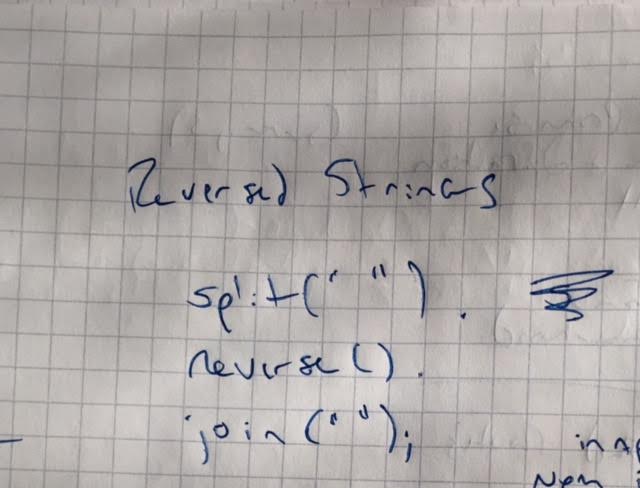 Reversed Strings
split(" ").
reverse().
join(" ");